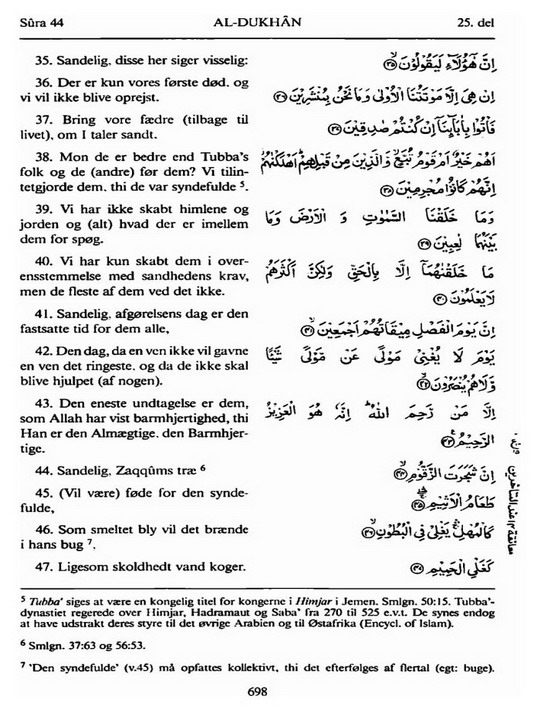 Sûra 44 AL-DUKHÂN 25. del
35. Sandelig, disse her siger visselig:
36. Der er kun vores første død, og
vi vil ikke blive oprejst.
37. Bring vore fædre (tilbage til
livet), om I taler sandt.
38. Mon de er bedre end Tubba's
folk og de (andre) før dem? Vi tilin-
tetgjorde dem, thi de var syndefulde 5.
39. Vi har ikke skabt himlene og
jorden og (alt) hvad der er imellem
dem for spøg.
40. Vi har kun skabt dem i over-
ensstemmelse med sandhedens krav,
men de fleste af dem ved det ikke.
41. Sandelig, afgørelsens dag er den
fastsatte tid for dem alle,
42. Den dag, da en ven ikke vil gavne
en ven det ringeste, og da de ikke skal
blive hjulpet (af nogen).
43. Den eneste undtagelse er dem,
som Allah har vist barmhjertighed, thi
Han er den Almægtige, den Barmhjer-
tige.
44. Sandelig, Zaqqûms træ 6
45. (Vil være) føde for den synde-
fulde,
46. Som smeltet bly vil det brænde
i hans bug 7,
47. Ligesom skoldhedt vand koger.
اِنَّ هٰۤؤُلَآءِ لَيَقُوْلُوْنَ
اِنْ هِيَ اِلَّا مَوْتَتُنَا الْاُوْلٰى وَمَا نَحْنُ بِمُنْشَرِيْنَ
فَاْتُوْا بِاٰبَآئِنَآ اِنْ كُنْتُمْ صٰدِقِيْنَ
اَهُمْ خَيْرٌ اَمْ قَوْمُ تُبَّعٍ وَّالَّذِيْنَ مِنْ قَبْلِهِمْ اَهْلَكْنٰهُمْ
اِنَّهُمْ كَانُوْا مُجْرِمِيْنَ
وَمَا خَلَقْنَا السَّمٰوٰتِ وَ الْاَرْضَ وَمَا
بَيْنَهُمَا لٰعِبِيْنَ
مَا خَلَقْنٰهُمَآ اِلَّا بِالْحَقِّ وَلٰكِنَّ اَكْثَرَهُمْ
لَا يَعْلَمُوْنَ
اِنَّ يَوْمَ الْفَصْلِ مِيْقَاتُهُمْ اَجْمَعِيْنَ
يَوْمَ لَا يُغْنِيْ مَوْلًى عَنْ مَّوْلًى شَيْئًا
وَّلَا هُمْ يُنْصَرُوْنَ
اِلَّا مَنْ رَّحِمَ اللّٰهُ اِنَّهٗ هُوَ الْعَزِيْزُ
الرَّحِيْمُ
اِنَّ شَجَرَتَ الزَّقُّوْمِ
طَعَامُ الْاَثِيْمِ
كَالْمُهْلِ يَغْلِيْ فِي الْبُطُوْنِ
كَغَلْيِ الْحَمِيْمِ
5 Tubba' siges at være en kongelig titel for kongerne i Himjar i Jemen. Smlgn. 50:15. Tubba'-
dynastiet regerede over Himjar, Hadramaut og Saba' fra 270 til 525 e.v.t. De synes endog
at have udstrakt deres styre til det øvrige Arabien og til Østafrika (Encycl. of Islam).
6 Smlgn. 37:63 og 56:53.
7 'Den syndefulde' (v.45) må opfattes kollektivt, thi det efterfølges af flertal (egt: buge).
698